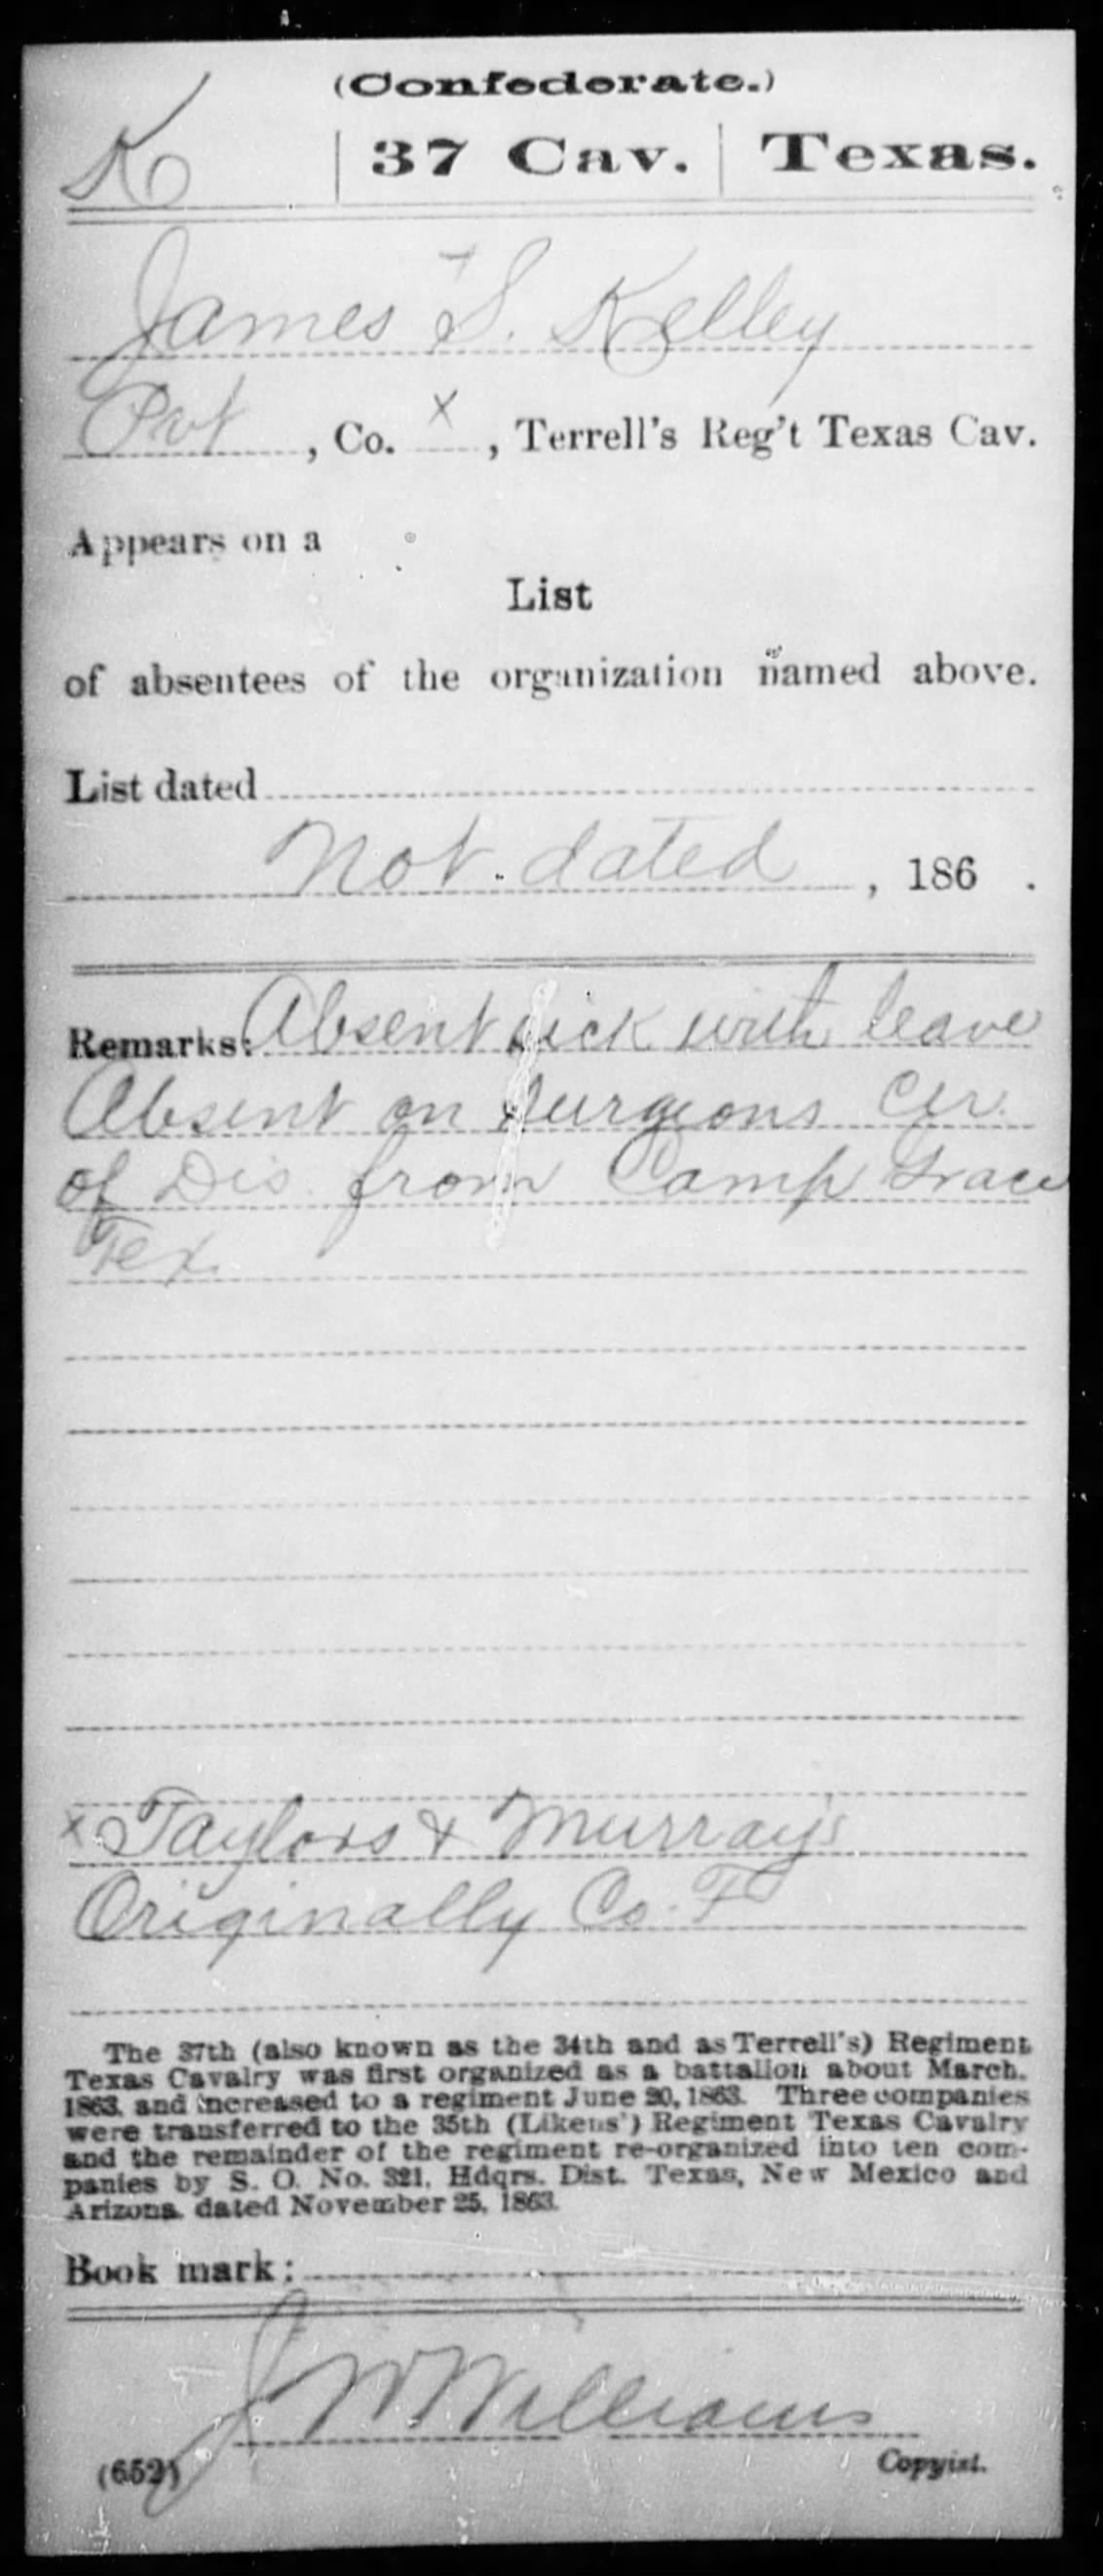 (Confederate.)
K | 37 Cav. | Texas.
James S. Kelley
Pvt, Co. x, Terrell's Reg't Texas Cav.
Appears on a
List
of absentees of the organization named above.
List dated
Not dated, 186 .
Remarks: Absent sick with leave
Absent on Surgeons Cer.
of Dis. from Camp Grace
Tex.
x Taylors & Murray's
Originally Co. F
The 37th (also known as the 34th and as Terrell's) Regiment
Texas Cavalry was first organized as a battalion about March,
1863, and increased to a regiment June 20, 1863. Three companies
were transferred to the 35th (Likens') Regiment Texas Cavalry
and the remainder of the regiment re-organized into ten com-
panies by S. O. No. 321, Hdqrs. Dist. Texas, New Mexico and
Arizona, dated November 25, 1863.
Book mark:
J W Williams
(652) Copyist.